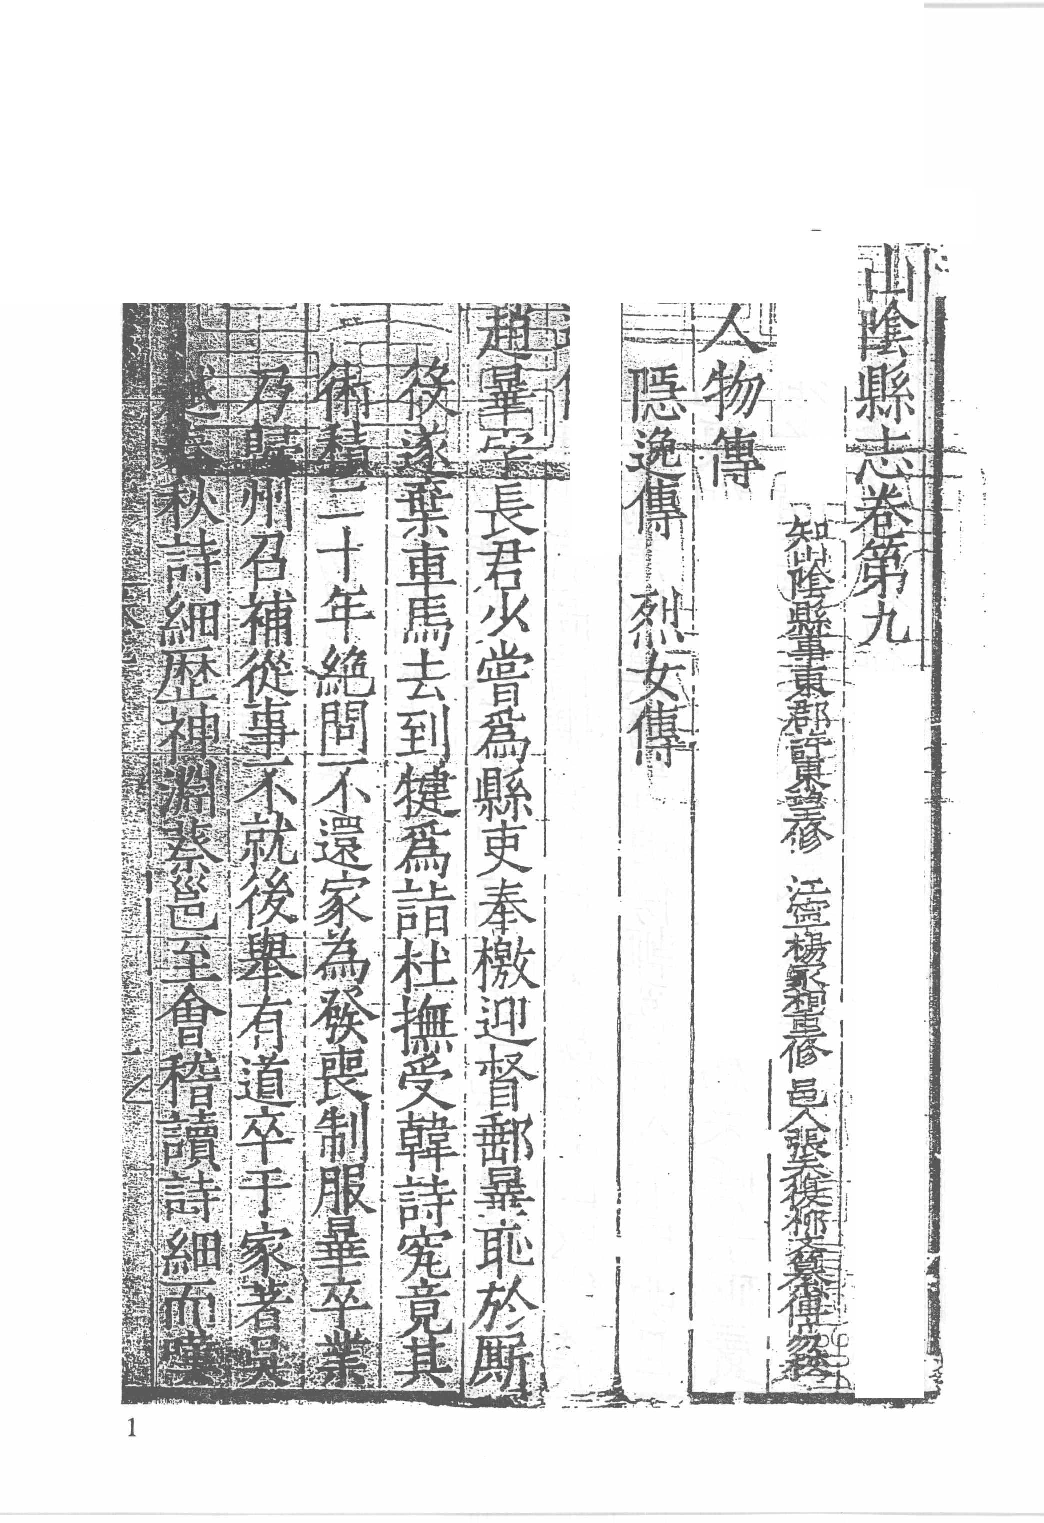 山陰縣志卷第九
知山陰縣事東郡許東望修 江寧楊家相重修 邑人張天復柳文纂傅
人物傳
隱逸傳 烈女傳
趙曅字長君少嘗爲縣吏奉檄迎督郵曅恥於厮
役遂棄車馬去到犍爲詣杜撫受韓詩究竟其
術積二十年絶問不還家為發喪制服曅卒業
乃歸州召補從事不就後舉有道卒于家著吳
越春秋詩細歴神淵蔡邕至會稽讀詩細而嘆
1